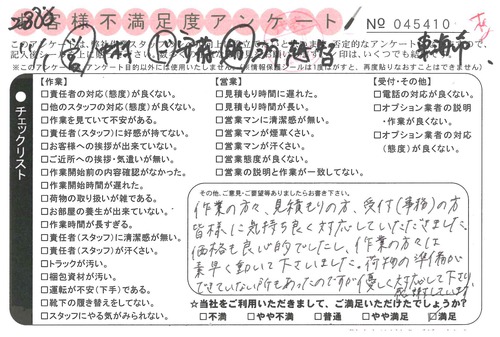 お客様不満足度アンケート
No 045410
東海市
チェックリスト
【作業】
□責任者の対応(態度)が良くない。
□他のスタッフの対応(態度)が良くない。
□作業を見ていて不安がある。
□責任者(スタッフ)に好感が持てない。
□お客様への挨拶が出来ていない。
□ご近所への挨拶・気遣いが無い。
□作業開始前の内容確認がなかった。
□作業開始時間が遅れた。
□荷物の取り扱いが雑である。
□お部屋の養生が出来ていない。
□作業時間が長すぎる。
□責任者(スタッフ)に清潔感が無い。
□責任者(スタッフ)が汗くさい。
□トラックが汚い。
□梱包資材が汚い。
□運転が不安(下手)である。
□靴下の履き替えをしてない。
□スタッフにやる気がみられない。
【営業】
□見積もり時間に遅れた。
□見積もり時間が長い。
□営業マンに清潔感が無い。
□営業マンが煙草くさい。
□営業マンが汗くさい。
□営業態度が良くない。
□営業の説明と作業が一致してない。
【受付・その他】
□電話の対応が良くない。
□オプション業者の説明
・作業が良くない。
□オプション業者の対応
(態度)が良くない。
その他、ご意見・ご要望等ありましたらお書き下さい。
作業の方々、見積もりの方、受付(事務)の方
皆様に気持ち良く対応していただきました。
価格も良い的でしたし、作業の方々は
素早く動いて下さいました。荷物の準備が
できていない所もあったのですが優しく対応して下さり
感謝しています。
☆当社をご利用いただきまして、ご満足いただけたでしょうか?
□不満 □やや不満 □普通 □やや満足 ☑満足